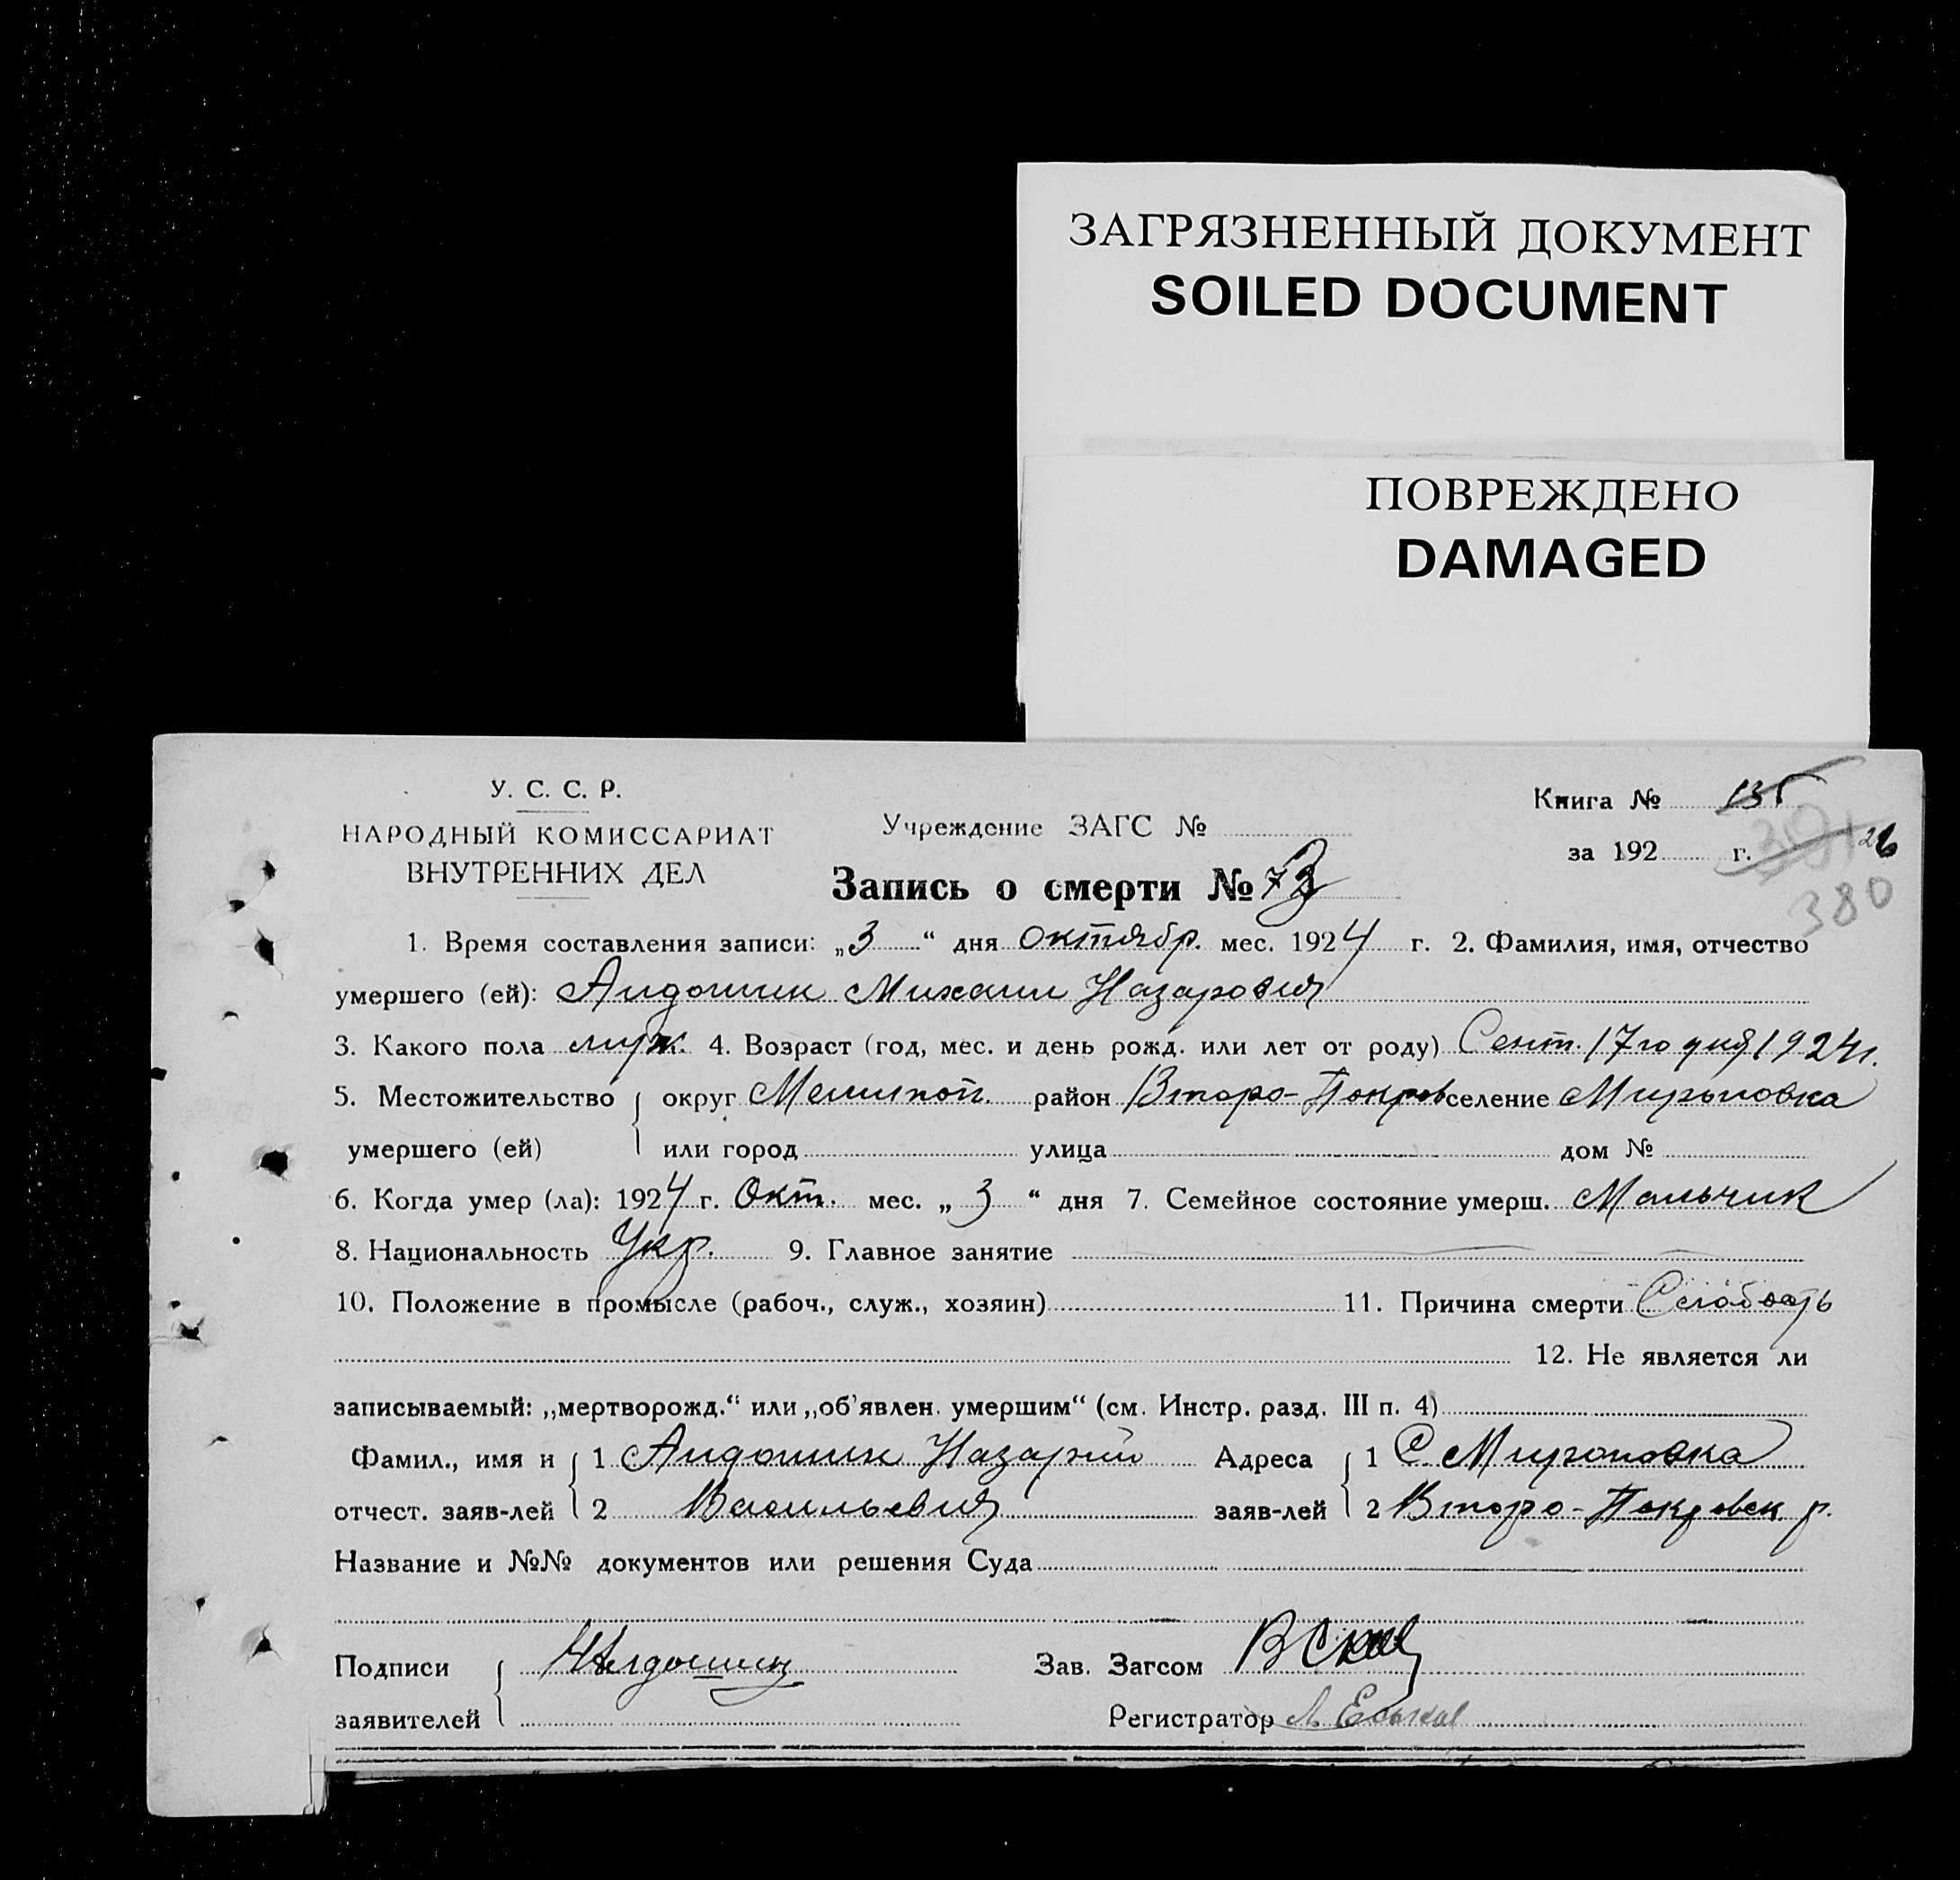 ЗАГРЯЗНЕННЫЙ ДОКУМЕНТ
SOILED DOCUMENT
ПОВРЕЖДЕНО
DAMAGED
У. С. С. Р.
НАРОДНЫЙ КОМИССАРИАТ
ВНУТРЕННИХ ДЕЛ
Учреждение ЗАГС №
Книга № 135
за 192 г. 26
380
Запись о смерти № 73
1. Время составления записи: „3“ дня Октябр. мес. 1924 г. 2. Фамилия, имя, отчество
умершего (ей): Михаил Назарович
3. Какого пола муж. 4. Возраст (год, мес. и день рожд. или лет от роду) Сент. 17го дня 1924г.
5. Местожительство округ Мелитоп. район Второ-Покров селение
умершего (ей) или город улица дом №
6. Когда умер (ла): 1924 г. Окт. мес. „3“ дня 7. Семейное состояние умерш. Мальчик
8. Национальность Укр. 9. Главное занятие
10. Положение в промысле (рабоч., служ., хозяин) 11. Причина смерти Слабость
12. Не является ли
записываемый: „мертворожд.“ или „об'явлен. умершим“ (см. Инстр. разд. III п. 4)
Фамил., имя и 1 Назарий Адреса 1 С.
отчест. заяв-лей 2 Васильевич заяв-лей 2 Второ-Покровск р.
Название и №№ документов или решения Суда
Подписи Зав. Загсом
заявителей Регистратор